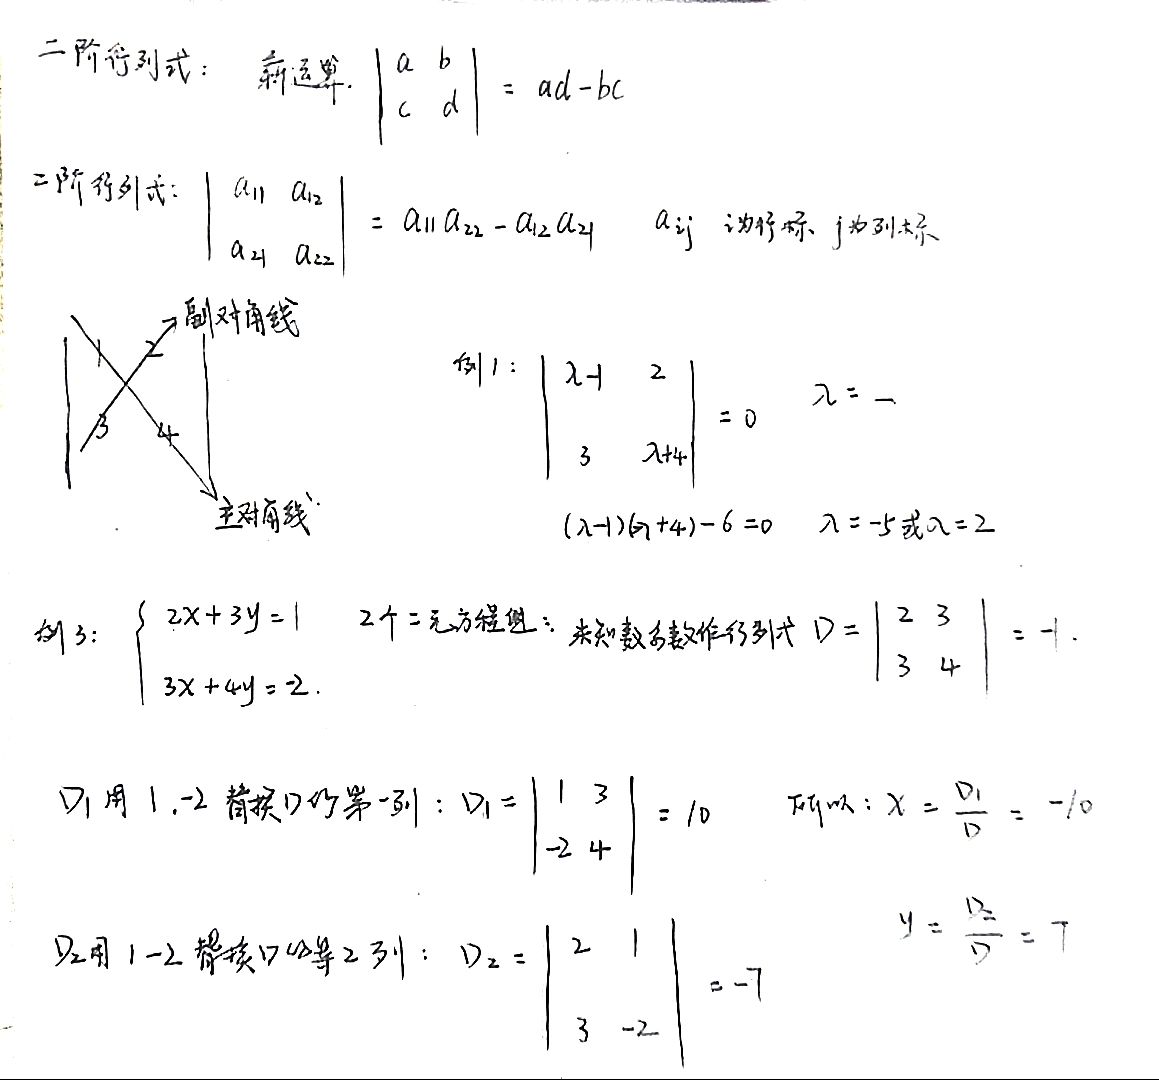 二阶行列式： 新运算. | a b ; c d | = ad-bc
二阶行列式: | a₁₁ a₁₂ ; a₂₁ a₂₂ | = a₁₁a₂₂-a₁₂a₂₁ aᵢⱼ i为行标、j为列标
副对角线
1 2
3 4
主对角线
例1: | λ-1 2 ; 3 λ+4 | = 0 λ = _
(λ-1)(λ+4)-6=0 λ=-5或λ=2
例3: { 2x+3y=1 ; 3x+4y=-2. 2个二元方程组: 未知数系数作行列式 D = | 2 3 ; 3 4 | = -1.
D₁用 1.-2 替换D的第一列: D₁ = | 1 3 ; -2 4 | = 10 所以: x = D₁/D = -10
D₂用 1 -2 替换D的第2列: D₂ = | 2 1 ; 3 -2 | = -7 y = D₂/D = 7